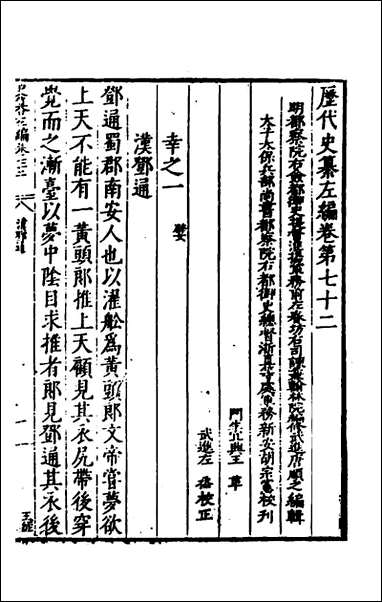 歷代史纂左編卷第七十二
明都察院右僉都御史提督淮揚軍務前左春坊右司諫兼翰林院編修武進唐順之編輯
太子太保兵部尚書都察院右都御史總督浙直等處軍務新安胡宗憲校刊
門生宜興王革
武進左烝校正
幸之一 嬖
漢鄧通
鄧通蜀郡南安人也以濯船為黃頭郎文帝嘗夢欲
上天不能有一黃頭郎推上天顧見其衣尻帶後穿
覺而之漸臺以夢中陰目求推者郎見鄧通其衣後